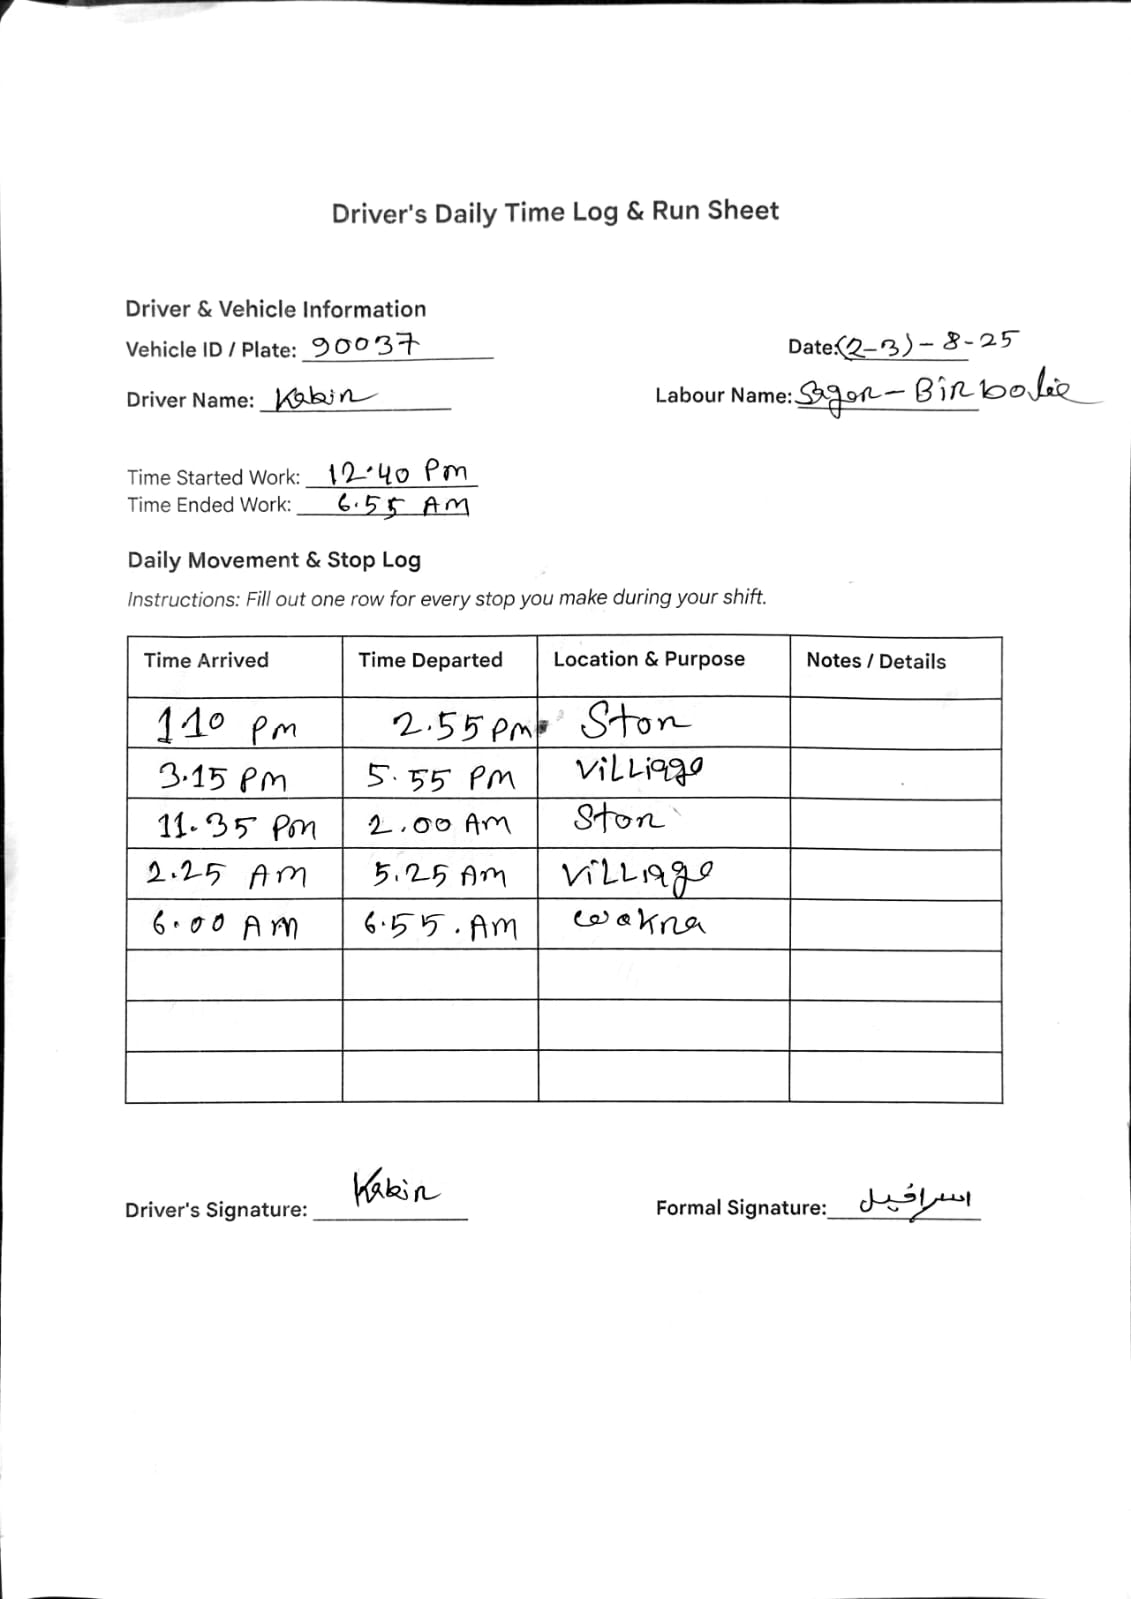 Driver's Daily Time Log & Run Sheet
Driver & Vehicle Information
Vehicle ID / Plate: 90037
Date: (2-3) - 8-25
Driver Name: Kabir
Labour Name: Sagor - Birbolie
Time Started Work: 12.40 Pm
Time Ended Work: 6.55 AM
Daily Movement & Stop Log
Instructions: Fill out one row for every stop you make during your shift.
Time Arrived Time Departed Location & Purpose Notes / Details
1 10 pm 2.55 pm Ston
3.15 PM 5.55 PM Villiage
11.35 Pm 2.00 AM Ston
2.25 AM 5.25 AM Villiage
6.00 AM 6.55.AM wakra
Driver's Signature: Kabir
Formal Signature: اسرافیل